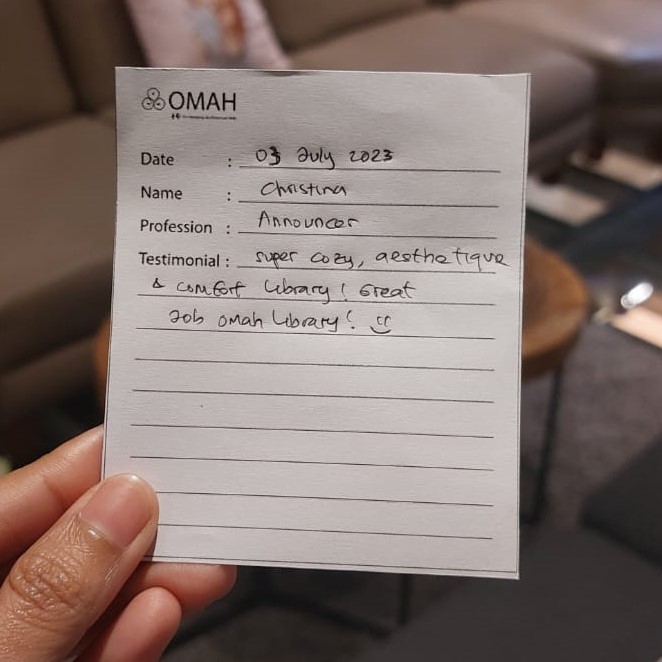 OMAH
Date : 03 July 2023
Name : Christina
Profession : Announcer
Testimonial : super cozy, aesthetique
& comfort library! Great
Job omah library!